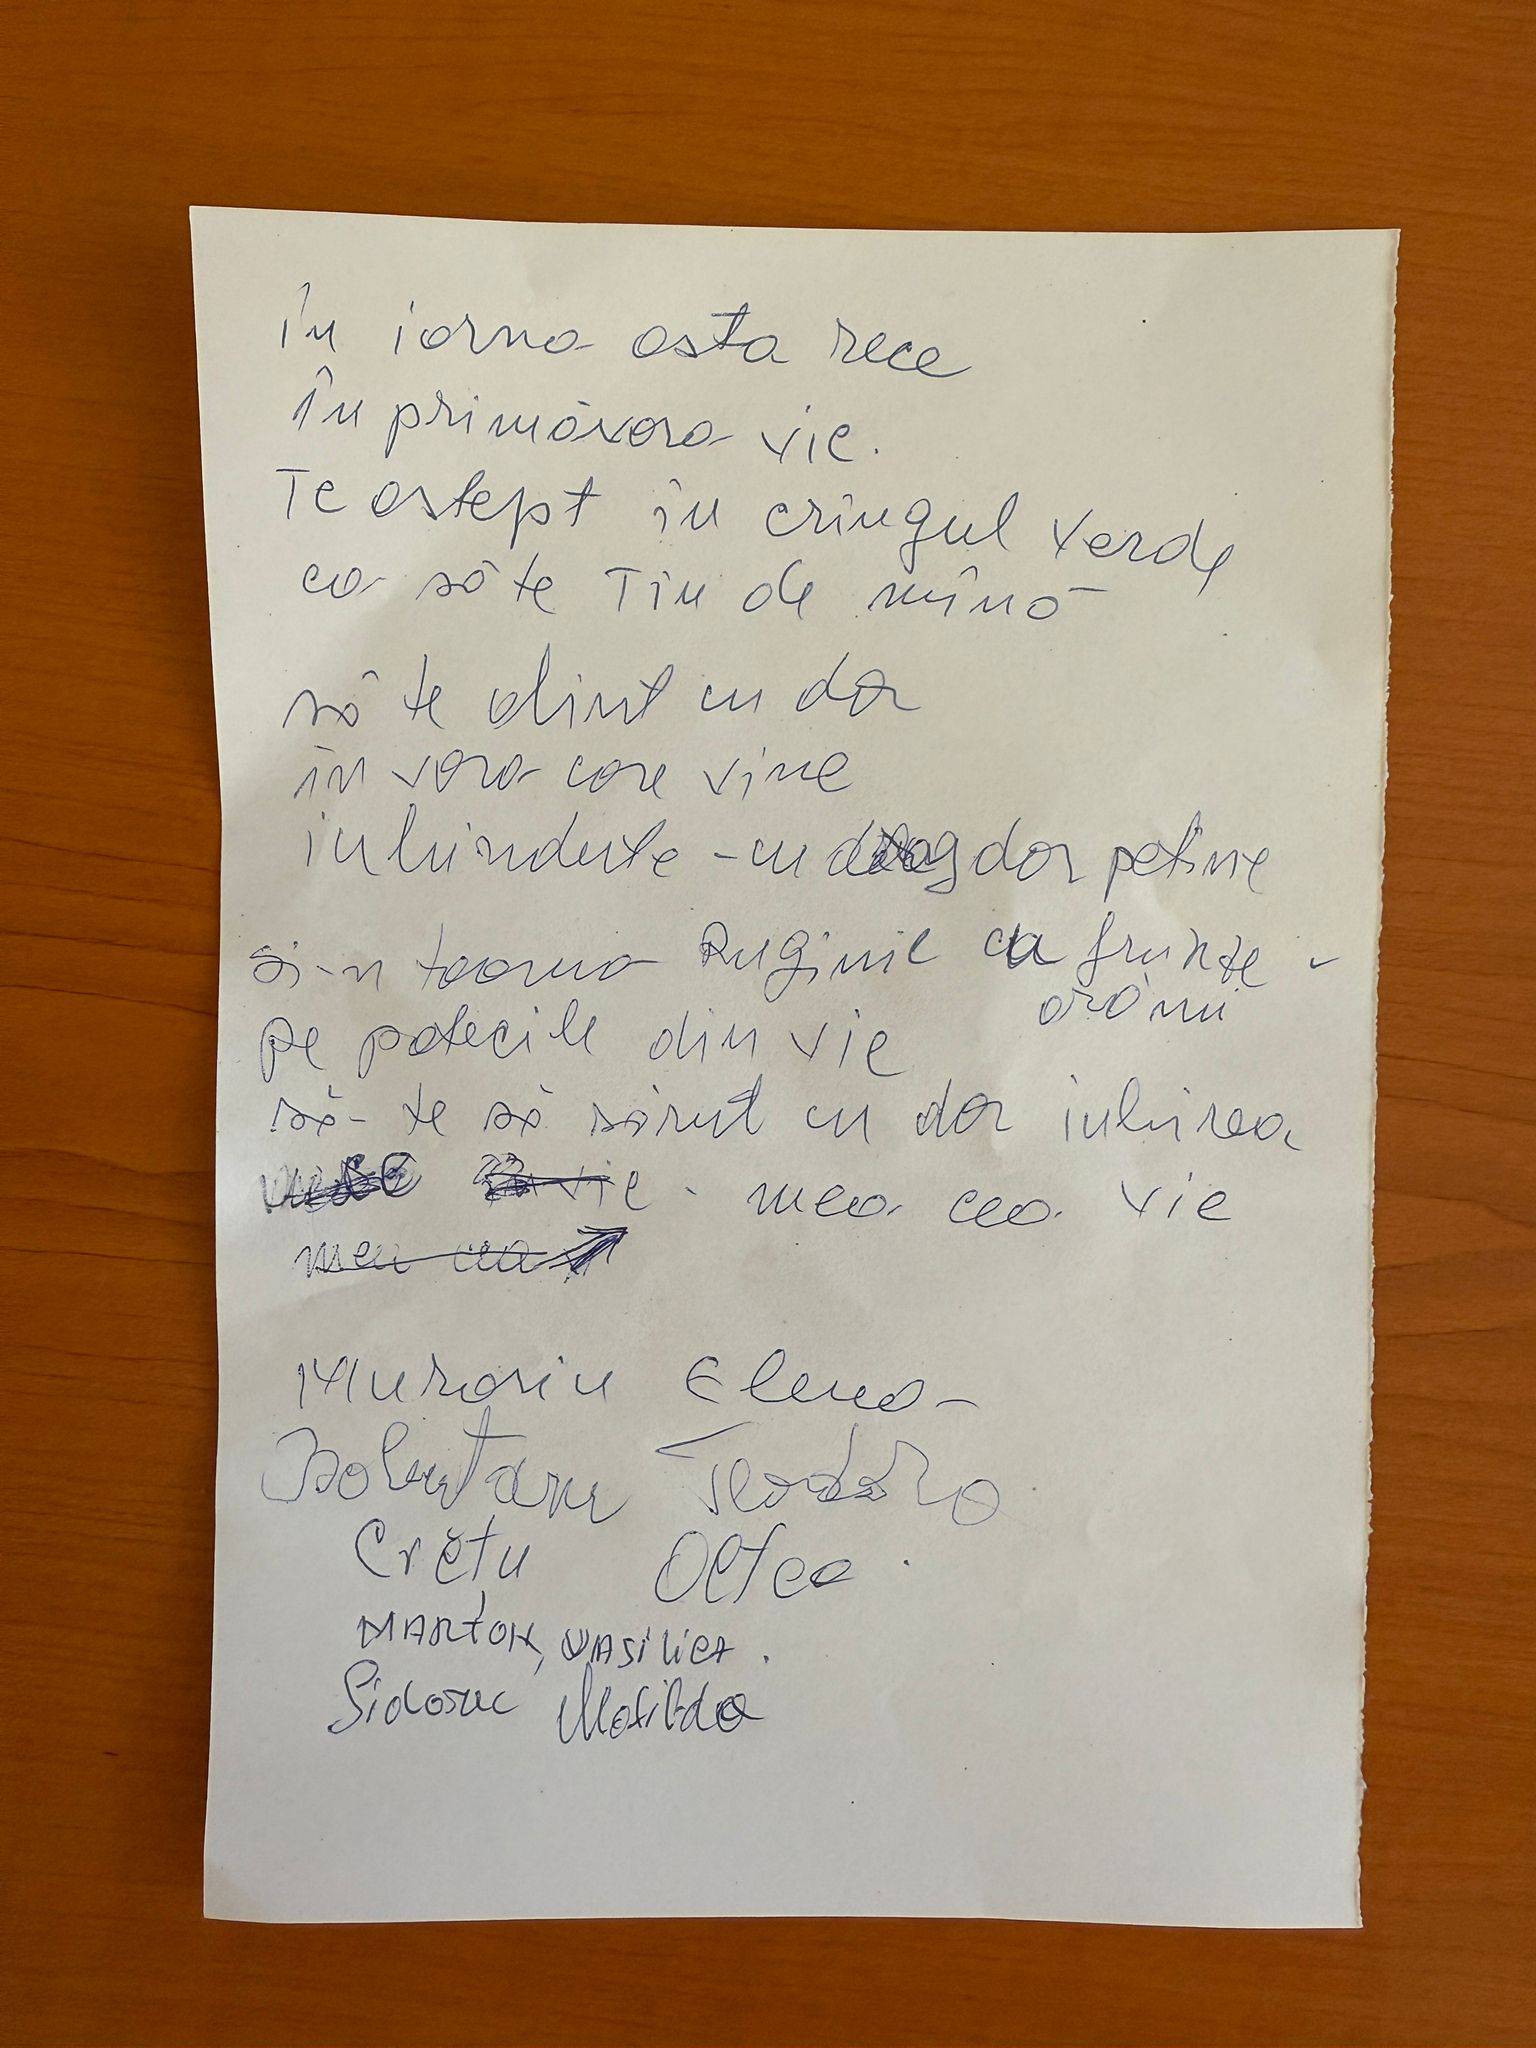 În iarna asta rece
În primăvara vie.
Te astept în crîngul verde
ca să te Tin de mînă
să te alint cu dor
în vara care vine
iubindute - cu dor petine
Si-n toamna Ruginie cu frunze
arămii
pe potecile din vie
să-te să sărut cu dor iubirea
mea cea vie
mea cea
Murariu Elena
Teodora
Crețu Oltea.
MARTON, VASILICA.
Sidoriuc Matilda